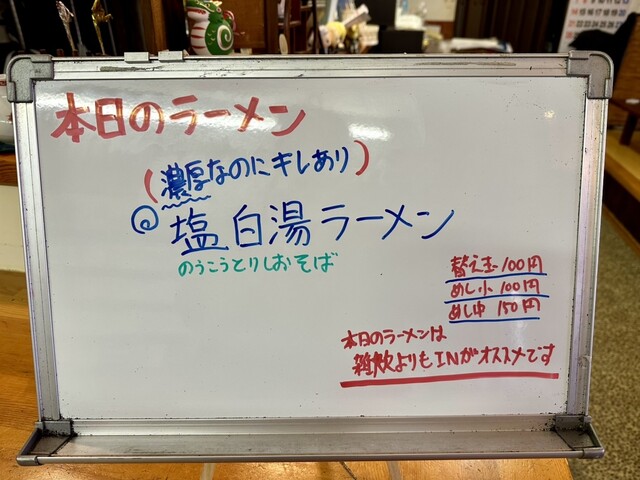 本日のラーメン
(濃厚なのにキレあり)
塩白湯ラーメン
のうこうとりしおそば
替え玉100円
めし小 100円
めし中 150円
本日のラーメンは
雑炊よりもINがオススメです